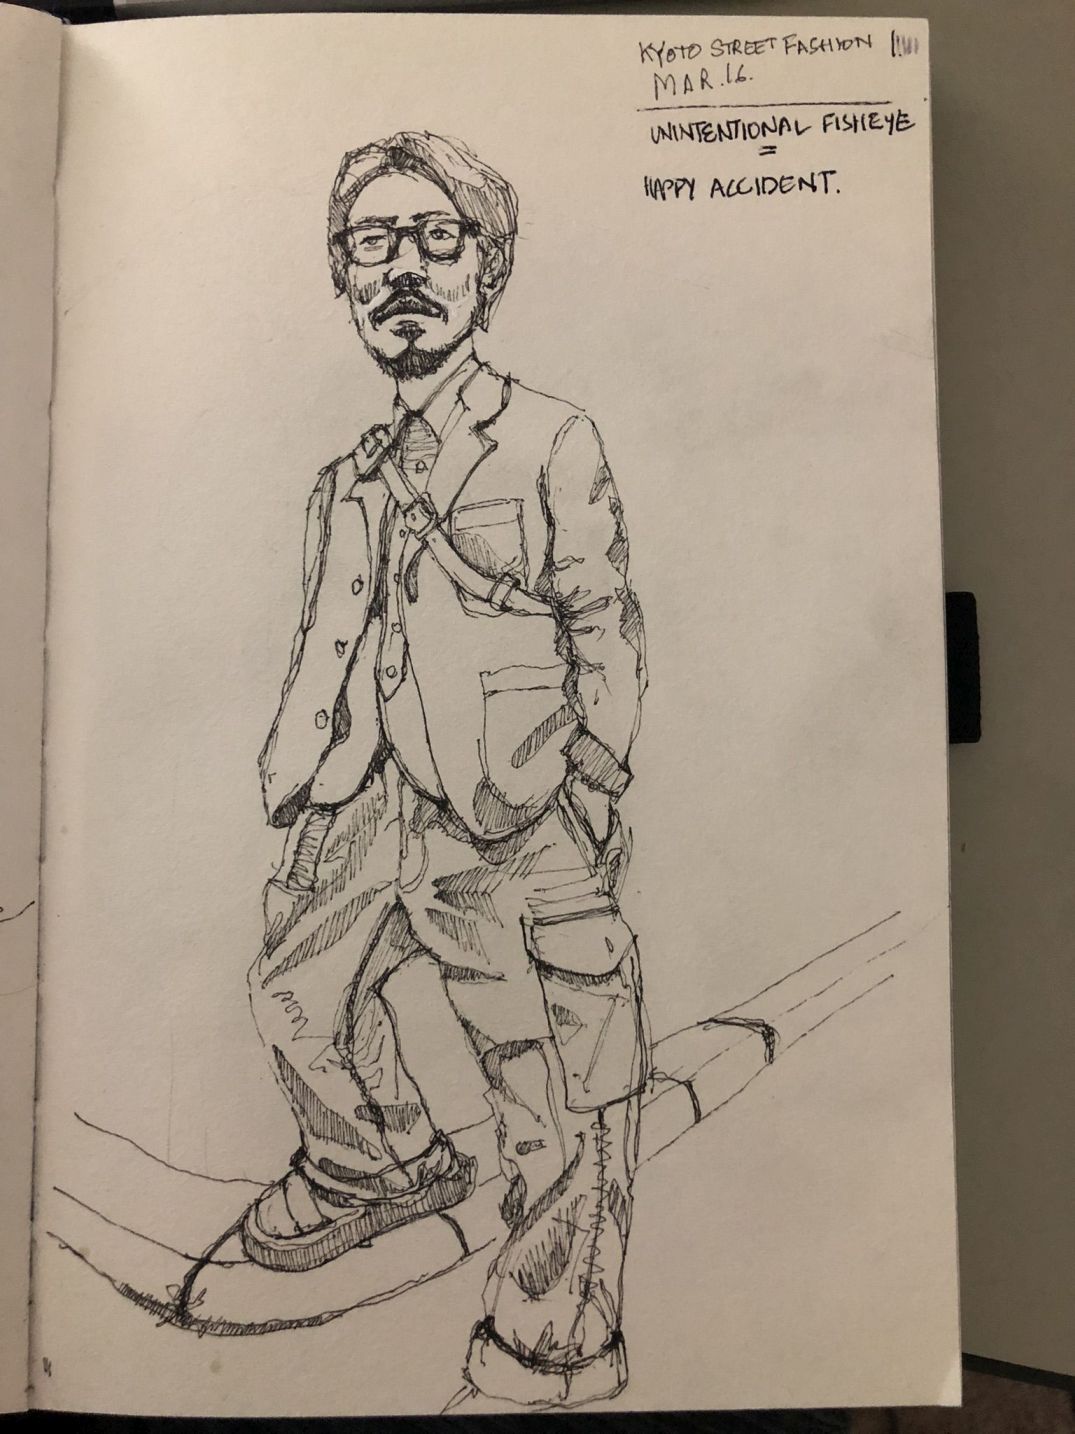 KYOTO STREET FASHION
MAR.16.
UNINTENTIONAL FISHEYE
=
HAPPY ACCIDENT.